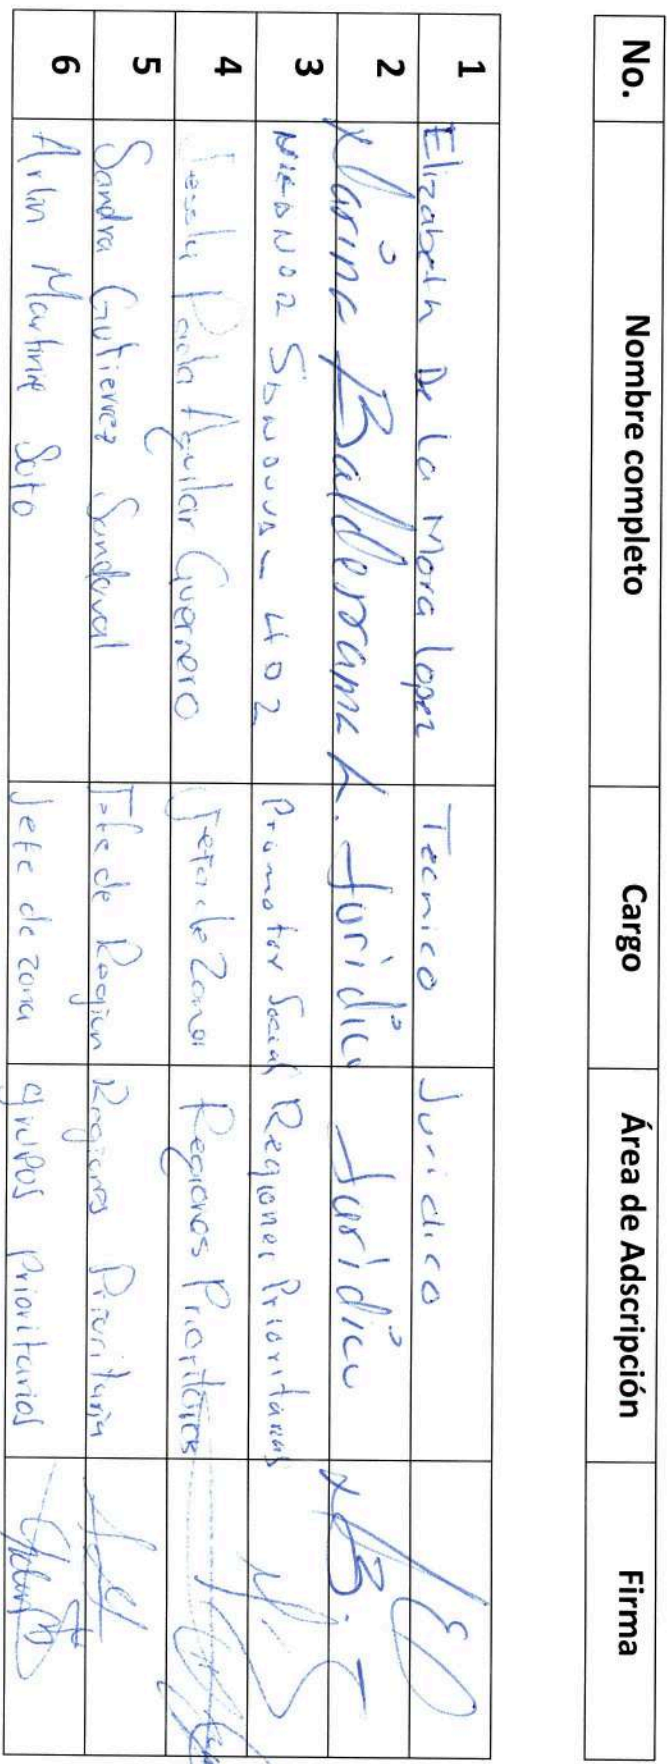 No. Nombre completo Cargo Área de Adscripción Firma
1 Elizabeth De la Mora Lopez Tecnico Juridico
2 Marina Balderrama L. Juridico Juridico
3 NICANOR Promotor Social Regiones Prioritarias
4 Paola Aguilar Guerrero Jefa de Zona Regiones Prioritarias
5 Sandra Gutierrez Sandoval Jefe de Region Regiones Prioritaria
6 Arlin Martinez Soto Jefe de zona grupos Prioritarios